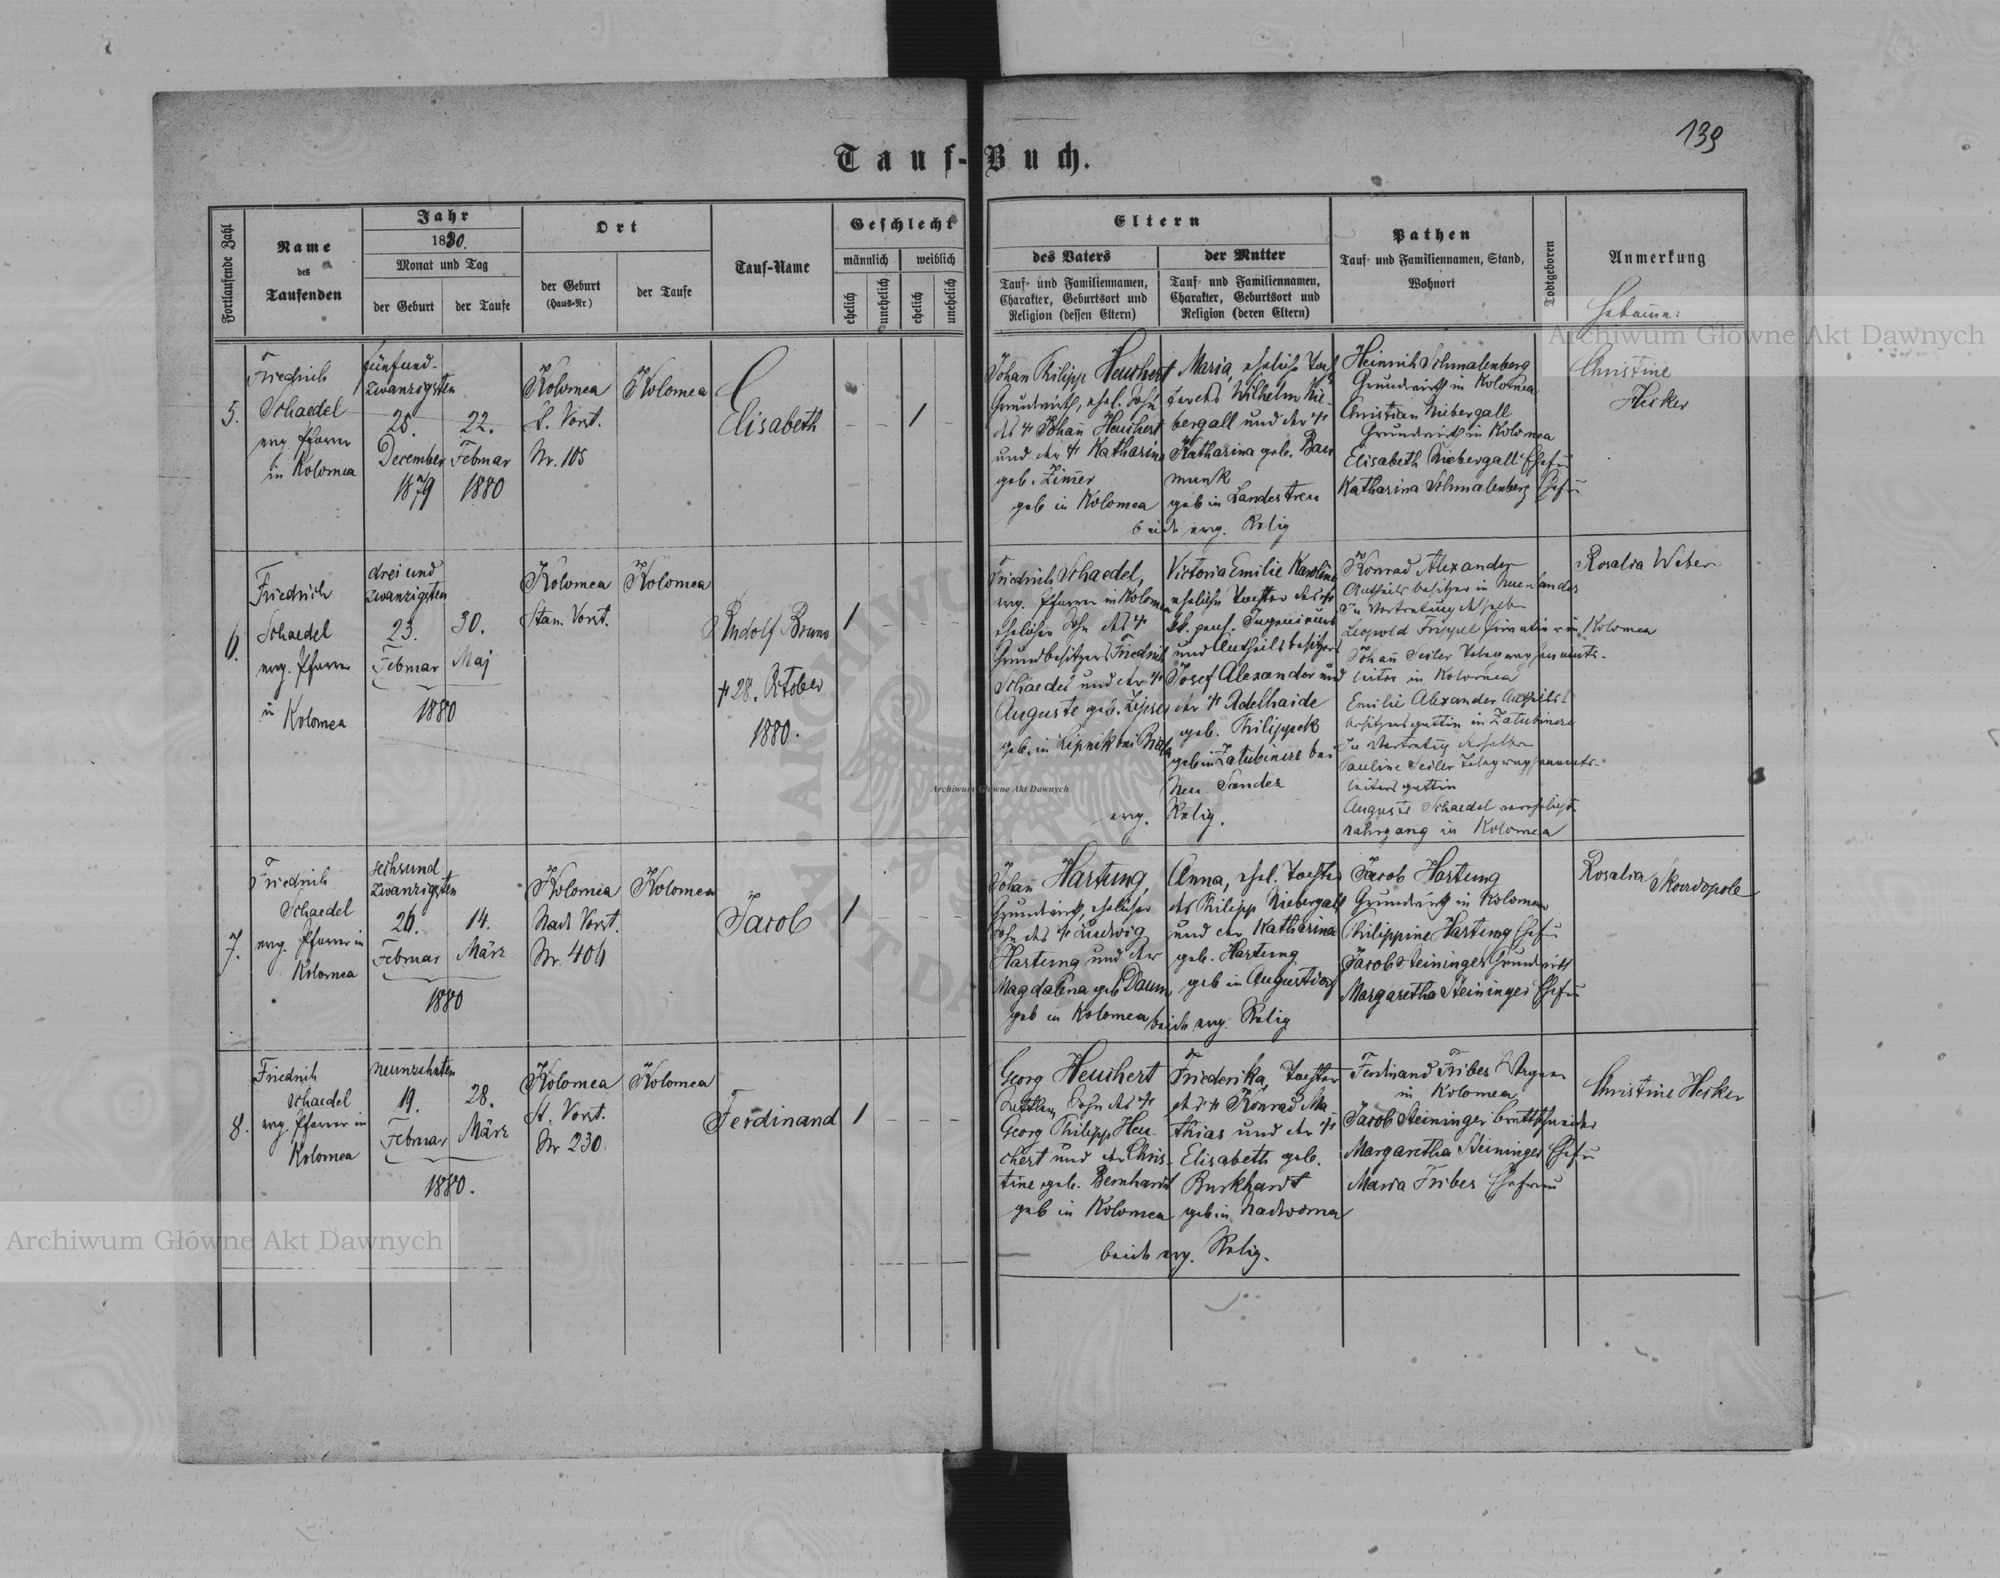 139
Tauf-Buch.
Fortlaufende Zahl
Name
des
Taufenden
Jahr
1880.
Monat und Tag
der Geburt
der Taufe
Ort
der Geburt
(Haus-Nr)
der Taufe
Tauf-Name
Geschlecht
männlich
weiblich
ehelich
unehelich
ehelich
unehelich
Eltern
des Vaters
Tauf- und Familiennamen,
Charakter, Geburtsort und
Religion (dessen Eltern)
der Mutter
Tauf- und Familiennamen,
Charakter, Geburtsort und
Religion (deren Eltern)
Pathen
Tauf- und Familiennamen, Stand,
Wohnort
Todtgeboren
Anmerkung
Hebamme:
5.
Friedrich
Schaedel
evg. Pfarrer
in Kolomea
fünfund-
zwanzigsten
25.
December
1879
22.
Februar
1880
Kolomea
Vorst.
Nr. 105
Kolomea
Elisabeth
- - 1 -
Johan Philipp Heuchert
Grundwirth, ehel. Sohn
des + Johann Heuchert
und der + Katharina
geb. Zimer
geb in Kolomea
Maria, eheliche Toch
ter des Wilhelm Nie-
bergall und der +
Katharina geb. Bau
munk
geb in Landestreu
beide evg. Relig
Heinrich Schmalenberg
Grundwirth in Kolomea
Christian Niebergall
Grundwirth in Kolomea
Elisabeth Niebergall Ehefr
Katharina Schmalenberg Ehefr
Christine
Hecker
6.
Friedrich
Schaedel
evg. Pfarrer
in
Kolomea
drei und
zwanzigsten
23.
Februar
30.
Maj
1880
Kolomea
Stan. Vorst.
Kolomea
Rudolf Bruno
+ 28. October
1880.
1 - - -
Friedrich Schaedel,
evg. Pfarrer in Kolomea
ehelicher Sohn des +
Grundbesitzers Friedrich
Schaedel und der +
Auguste geb. Zipser
geb. in Lipnik bei Biala
Victoria Emilie Karoline
eheliche Tochter des +
kk. pens. Ingenieurs
und Antheilsbesitzers
Josef Alexander und
der + Adelhaide
geb. Philippek
geb in Zalubincze bei
Neu Sandez
evg. Relig.
Konrad Alexander
Antheilsbesitzer in Neu-Sandez
In Vertretung desselben
Leopold Privatier in Kolomea
Johann Seiler Telegraphenamts-
leiter in Kolomea
Emilie Alexander Antheils-
besitzersgattin in Zalubincze
In Vertretung derselben
Pauline Seiler Telegraphenamts-
leitersgattin
Auguste Schaedel
in Kolomea
Rosalia Weber
7.
Friedrich
Schaedel
evg. Pfarrer in
Kolomea
sechsund
zwanzigsten
26.
Februar
14.
März
1880
Kolomea
Nad. Vorst.
Nr. 406
Kolomea
Jacob
1 - - -
Johann Hartung,
Grundwirth, ehelicher
Sohn des + Ludwig
Hartung und der
Magdalena geb Daum
geb in Kolomea
Anna, ehel. Tochter
des Philipp Niebergall
und der Katharina
geb. Hartung
geb in Augustdorf
beide evg. Relig
Jacob Hartung
Grundwirth in Kolomea
Philippine Hartung Ehefr
Jacob Steininger Grundwirth
Margaretha Steininger Ehefr
Rosalia
8.
Friedrich
Schaedel
evg. Pfarrer in
Kolomea
neunzehnten
19.
Februar
28.
März
1880.
Kolomea
St. Vorst.
Nr 230.
Kolomea
Ferdinand
1 - - -
Georg Heuchert
Sohn des +
Georg Philipp Heu-
chert und der Chris-
tine geb. Bernhardt
geb in Kolomea
Friederika, Tochter
des + Konrad Ma-
thias und der +
Elisabeth geb.
Burkhardt
geb in Nadworna
beide evg. Relig.
Ferdinand Tribes
in Kolomea
Jacob Steininger Brettschneider
Margaretha Steininger Ehefr
Maria Tribes Ehefrau
Christine Hecker
Archiwum Główne Akt Dawnych
Archiwum Główne Akt Dawnych
Archiwum Główne Akt Dawnych